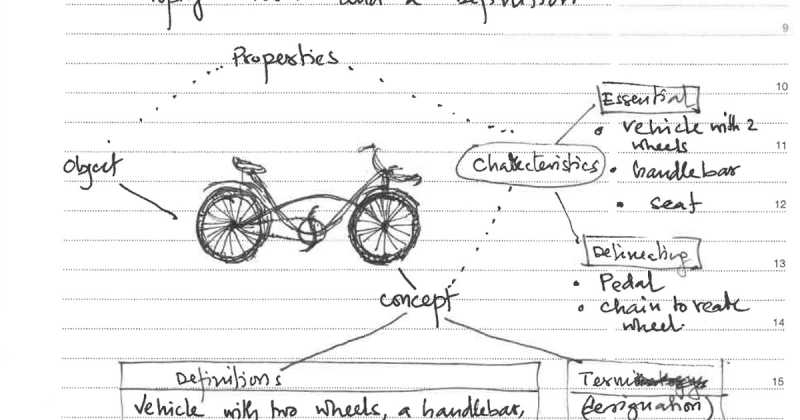 and a Definition
9
Properties
10
Essential
• vehicle with 2
wheels
11
Object
Characteristics
• handlebar
• seat
12
Delineating
13
• Pedal
concept
• chain to
wheel.
14
Definitions
Term
15
vehicle with two wheels, a handlebar,
(designation)